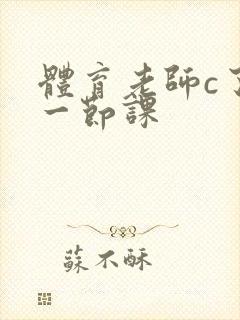 體育老師c了
一節課
蘇不酥